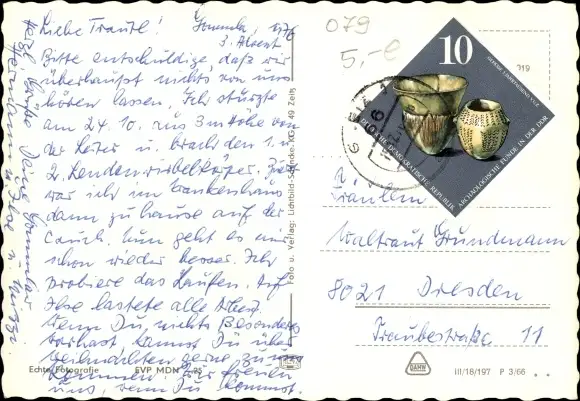 Liebe Traute! Gommla, 1976
3. Advent
Bitte entschuldige, daß wir
überhaupt nichts von uns
hören lassen. Ich stürzte
am 24.10. aus 3 m Höhe von
der Leiter u. brach den 1. u.
2. Lendenwirbelkörper. Erst
war ich im Krankenhaus
dann zu Hause auf der
Couch. Nun geht es mir
schon wieder besser. Ich
probiere das Laufen. Auf
Ilse lastete alle Arbeit.
Wenn Du nichts Besonderes
vorhast kannst Du über
Weihnachten gerne zu uns
kommen. Wir freuen
uns, wenn Du kommst.
Herzl. Grüße Deine Gommlaer
Hermann u. Ilse u. Mutti
Echte Fotografie EVP MDN -,25
Foto u. Verlag: Lichtbild-Schincke, KG, 49 Zeitz
079
5,-€
10
DEUTSCHE DEMOKRATISCHE REPUBLIK
ARCHÄOLOGISCHE FUNDE IN DER DDR
Fräulein
Waltraut Grundemann
8021 Dresden
Traubestraße 11
DAHW
III/18/197 P 3/66